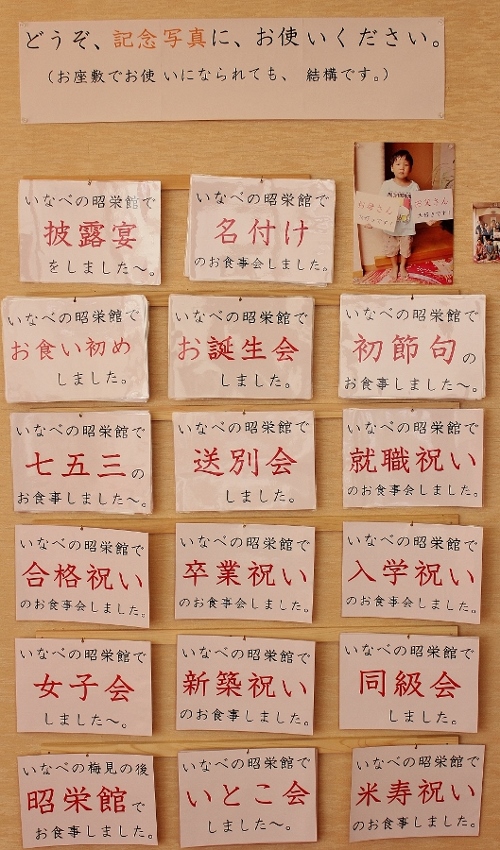 どうぞ、記念写真に、お使いください。
(お座敷でお使いになられても、結構です。)
いなべの昭栄館で
披露宴
をしました~。
いなべの昭栄館で
名付け
のお食事会しました。
いなべの昭栄館で
お食い初め
しました。
いなべの昭栄館で
お誕生会
しました。
いなべの昭栄館で
初節句の
お食事しました~。
いなべの昭栄館で
七五三の
お食事しました~。
いなべの昭栄館で
送別会
しました。
いなべの昭栄館で
就職祝い
のお食事会しました。
いなべの昭栄館で
合格祝い
のお食事会しました。
いなべの昭栄館で
卒業祝い
のお食事会しました。
いなべの昭栄館で
入学祝い
のお食事会しました。
いなべの昭栄館で
女子会
しました~。
いなべの昭栄館で
新築祝い
のお食事しました。
いなべの昭栄館で
同級会
しました。
いなべの梅見の後
昭栄館で
お食事しました。
いなべの昭栄館で
いとこ会
しました~。
いなべの昭栄館で
米寿祝い
のお食事しました。